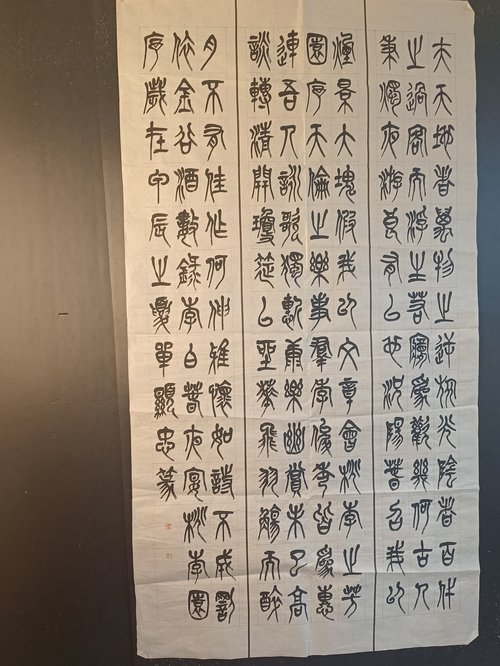 夫天地者萬物之逆旅光陰者百代
之過客而浮生若夢為歡幾何古人
秉燭夜遊良有以也況陽春召我以
煙景大塊假我以文章會桃李之芳
園序天倫之樂事群季俊秀皆為惠
連吾人詠歌獨慚康樂幽賞未已高
談轉清開瓊筵以坐華飛羽觴而醉
月不有佳作何伸雅懷如詩不成罰
依金谷酒數錄李白春夜宴桃李園
序歲在甲辰之夏單顯忠篆